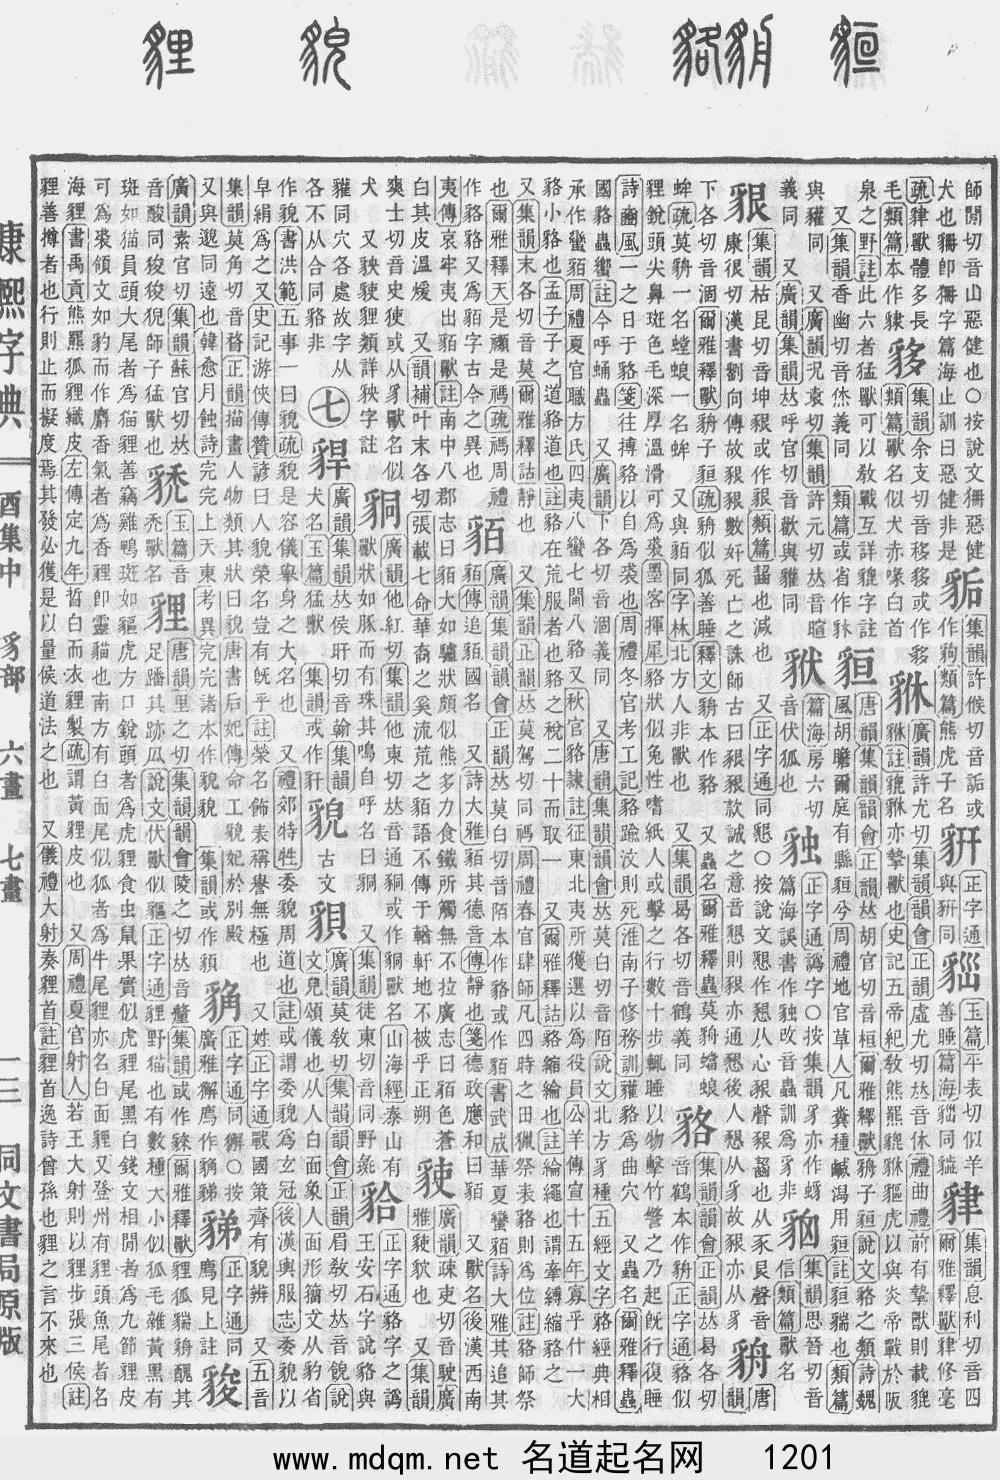 師閒切音山惡健也○按說文狦惡健 集韻許候切音詬或 正字通 玉篇平表切似羊 集韻息利切音四
犬也狦卽狦字篇海止訓曰惡健非是 作狗類篇熊虎子名 豜 與豜同 善睡篇海 貄 爾雅釋獸貄修毫
疏貄獸體多長 貅 集韻余支切音移移或作
毛類篇本作㣇 類篇獸名似犬赤喙白首 貅 廣韻許尤切集韻韻會正韻虛尤切𠀤音休禮曲禮前有摯獸則載貔
泉之野註此六者猛獸可以敎戰互詳貔字註 貅註貔貅亦摯獸也史記五帝紀敎熊羆貔貅貙虎以與炎帝戰於阪
又集韻香幽切音烋義同 類篇或省作 貆 唐韻集韻韻會正韻𠀤胡官切音桓爾雅釋獸貈子貆說文貉之類詩魏
與貛同 又廣韻況袁切集韻許元切𠀤音暄 風胡瞻爾庭有縣貆兮周禮地官草人凡糞種鹹潟用貆註貆貒也類篇
義同 又廣韻集韻𠀤呼官切音歡與貛同 篇海房六切 正字通譌字○按集韻 集韻思晉切音
音伏狐也 篇海誤書作 信類篇獸名
貇 集韻枯昆切音坤豤或作貇類篇齧也減也 又正字通同懇○按說文懇作 貈 唐韻
康很切漢書劉向傳故豤豤數奸死亡之誅師古曰豤豤款誠之意音懇
下各切音涸爾雅釋獸貈子貆疏貈似狐善睡釋文貈本作貉 又蟲名爾雅釋蟲莫貈蟷蜋
蛑疏莫貈一名螳蜋一名蛑 又與貊同字林北方人非獸也 又集韻曷各切音鶴義同 貉 集韻韻會正韻𠀤曷各切音鶴本作貈正字通貉似
貍銳頭尖鼻斑色毛深厚溫滑可爲裘墨客揮犀貉狀似兔性嗜紙人或擊之行數十步輒睡以物擊竹警之乃起旣行復睡
詩豳風一之日于貉箋往搏貉以自爲裘也周禮冬官考工記貉踰汶則死淮南子修務訓貛貉爲曲穴 又蟲名爾雅釋蟲
國貉蟲蠁註今呼蛹蟲 又廣韻下各切音涸義同 又唐韻集韻韻會𠀤莫白切音陌說文北方豸種五經文字貉經典相
承作蠻貊周禮夏官職方氏四夷八蠻七閩八貉又秋官貉隸註征東北夷所獲選以爲役員公羊傳宣十五年寡乎什一大
貉小貉也孟子子之道貉道也註貉在荒服者也貉之稅二十而取一 又爾雅釋詁貉縮綸也註綸繩也謂牽縛縮貉之
又集韻末各切音莫爾雅釋詁靜也 又集韻正韻𠀤莫駕切同禡周禮春官肆師凡四時之田獵祭表貉則爲位註貉師祭
也爾雅釋天是禷是禡疏禡周禮
作貉貉又爲古今之異也 貊 廣韻集韻韻會正韻𠀤莫白切音陌本作貉或作貊書武成華夏蠻貊詩大雅其追其
貊傳追貊國名 又詩大雅貊其德音傳靜也箋德政應和曰貊 又獸名後漢西南
夷傳哀牢夷出貊獸註南中八郡志曰貊大如驢狀頗似熊多力食鐵所觸無不拉廣志曰貊色蒼
白其皮溫煖 又韻補叶末各切張載七命華裔之夷流荒之貊語不傳于輶軒地不被乎正朔
廣韻疎吏切音駛廣 雅 又集韻
爽士切音史 或从豸獸名似 廣韻他紅切集韻他東切𠀤音通 或作 獸名山海經泰山有 正字通貉字之譌
犬 又 貍類詳 字註 獸狀如豚而有珠其鳴自呼名曰 又集韻徒東切音同野彘 王安石字說貉與
貛同穴各處故字从
各不从合同貉非 七 廣韻集韻𠀤侯旰切音翰 集韻或作豻 貌 古文 廣韻莫敎切集韻韻會正韻眉敎切𠀤音
犬名玉篇猛獸 文皃頌儀也从人白面象人面形籀文从豹省
作貌書洪範五事一曰貌疏貌是容儀舉身之大名也 又禮郊特牲委貌周道也註或謂委貌爲玄冠後漢輿服志委貌以
皁絹爲之又史記游俠傳贊諺曰人貌榮名豈有旣乎註榮名飾表稱譽無極也 又姓正字通戰國策齊有貌辨 又五音
集韻莫角切音 正韻描畫人物類其狀曰貌唐書后妃傳命工貌妃於別殿 正字通同獬○按 正字通同
又與邈同遠也韓愈月蝕詩完完上天東考異完完諸本作貌貌 集韻或作 廣雅獬廌作 廌見上註
廣韻素官切集韻蘇官切𠀤
音酸同狻狻猊師子猛獸也 玉篇音 貍 唐韻里之切集韻韻會陵之切𠀤音釐集韻或作 爾雅釋獸貍狐貒貈醜其
禿獸名 足蹯其跡瓜說文伏獸似貙正字通貍野猫也有數種大小似狐毛雜黃黑有
斑如猫員頭大尾者爲猫貍善竊雞鴨斑如貙虎方口銳頭者爲虎貍食虫鼠果實似虎貍尾黑白錢文相閒者爲九節貍皮
可爲裘領文如豹而作麝香氣者爲香貍卽靈貓也南方有白面尾似狐者爲牛尾貍亦名白面貍又登州有貍頭魚尾者名
海貍書禹貢熊羆狐貍織皮左傳定九年晳白而衣貍製疏謂黃貍皮也 又周禮夏官射人若王大射則以貍步張三侯註
貍善摶者也行則止而擬度焉其發必獲是以量侯道法之也 又儀禮大射奏貍首註貍首逸詩曾孫也貍之言不來也
康熙字典 酉集中 豸部 六畫 七畫 一三 同文書局原版
www.mdqm.net 名道起名网 1201